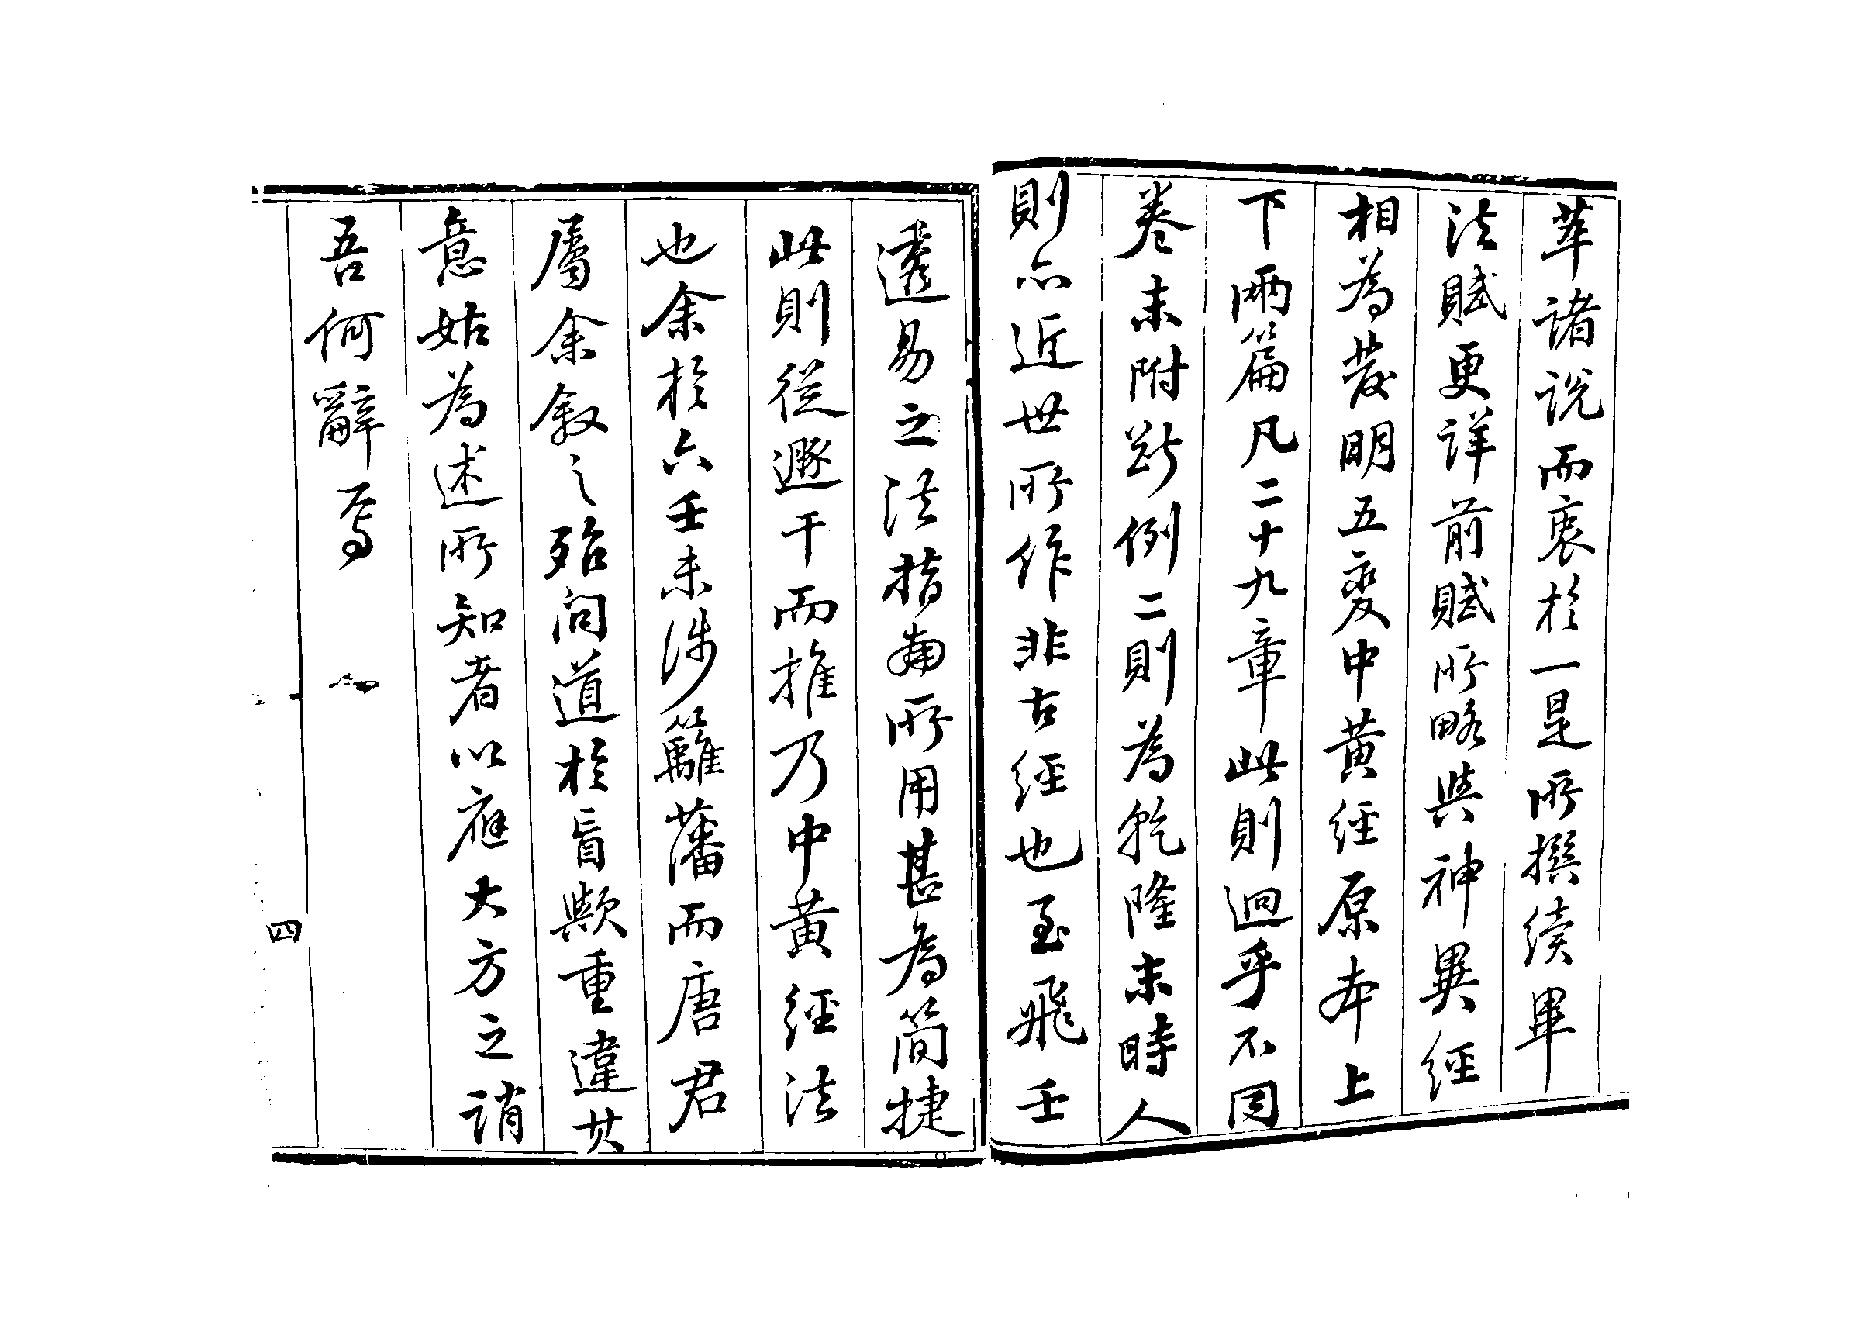 萃諸説而衷於一是所撰續畢
法賦更詳前賦所略與神異經
相為發明五变中黄經原本上
下兩篇凡二十九章此則迥乎不同
卷末附斷例二則為乾隆末時人
則亦近世所作非古經也至飛壬
透易之法指南所用甚為簡捷
此則從遯干而推乃中黄經法
也余於六壬未涉籬藩而唐君
屬余叙之殆問道於盲歟重違其
意姑為述所知者以應大方之誚
吾何辭焉
四